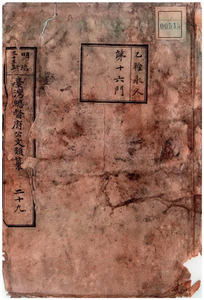 乙種永久
第十六門
明治三十三年
臺灣總督府公文類纂
二十九